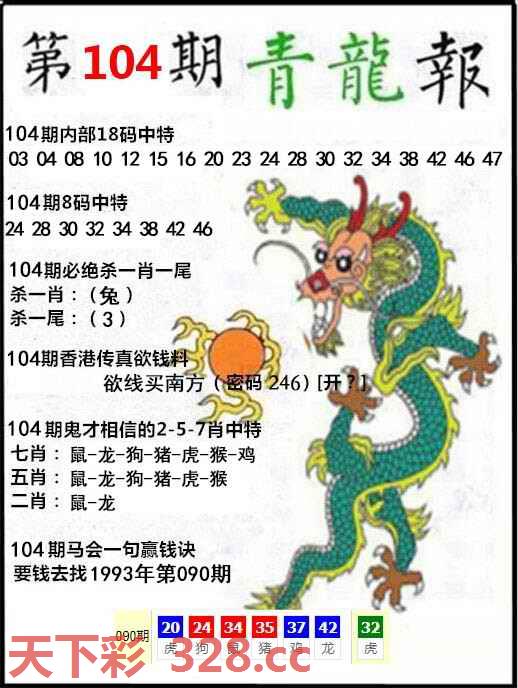 第104期 青龍報
104期内部18码中特
03 04 08 10 12 15 16 20 23 24 28 30 32 34 38 42 46 47
104期8码中特
24 28 30 32 34 38 42 46
104期必绝杀一肖一尾
杀一肖：（兔）
杀一尾：（3）
104期香港传真欲钱料
欲线买南方（密码 246）[开？]
104期鬼才相信的2-5-7肖中特
七肖：鼠-龙-狗-猪-虎-猴-鸡
五肖：鼠-龙-狗-猪-虎-猴
二肖：鼠-龙
104期马会一句赢钱诀
要钱去找1993年第090期
090期 20 24 34 35 37 42 32
虎 狗 鼠 猪 鸡 龙 虎
天下彩 328.cc